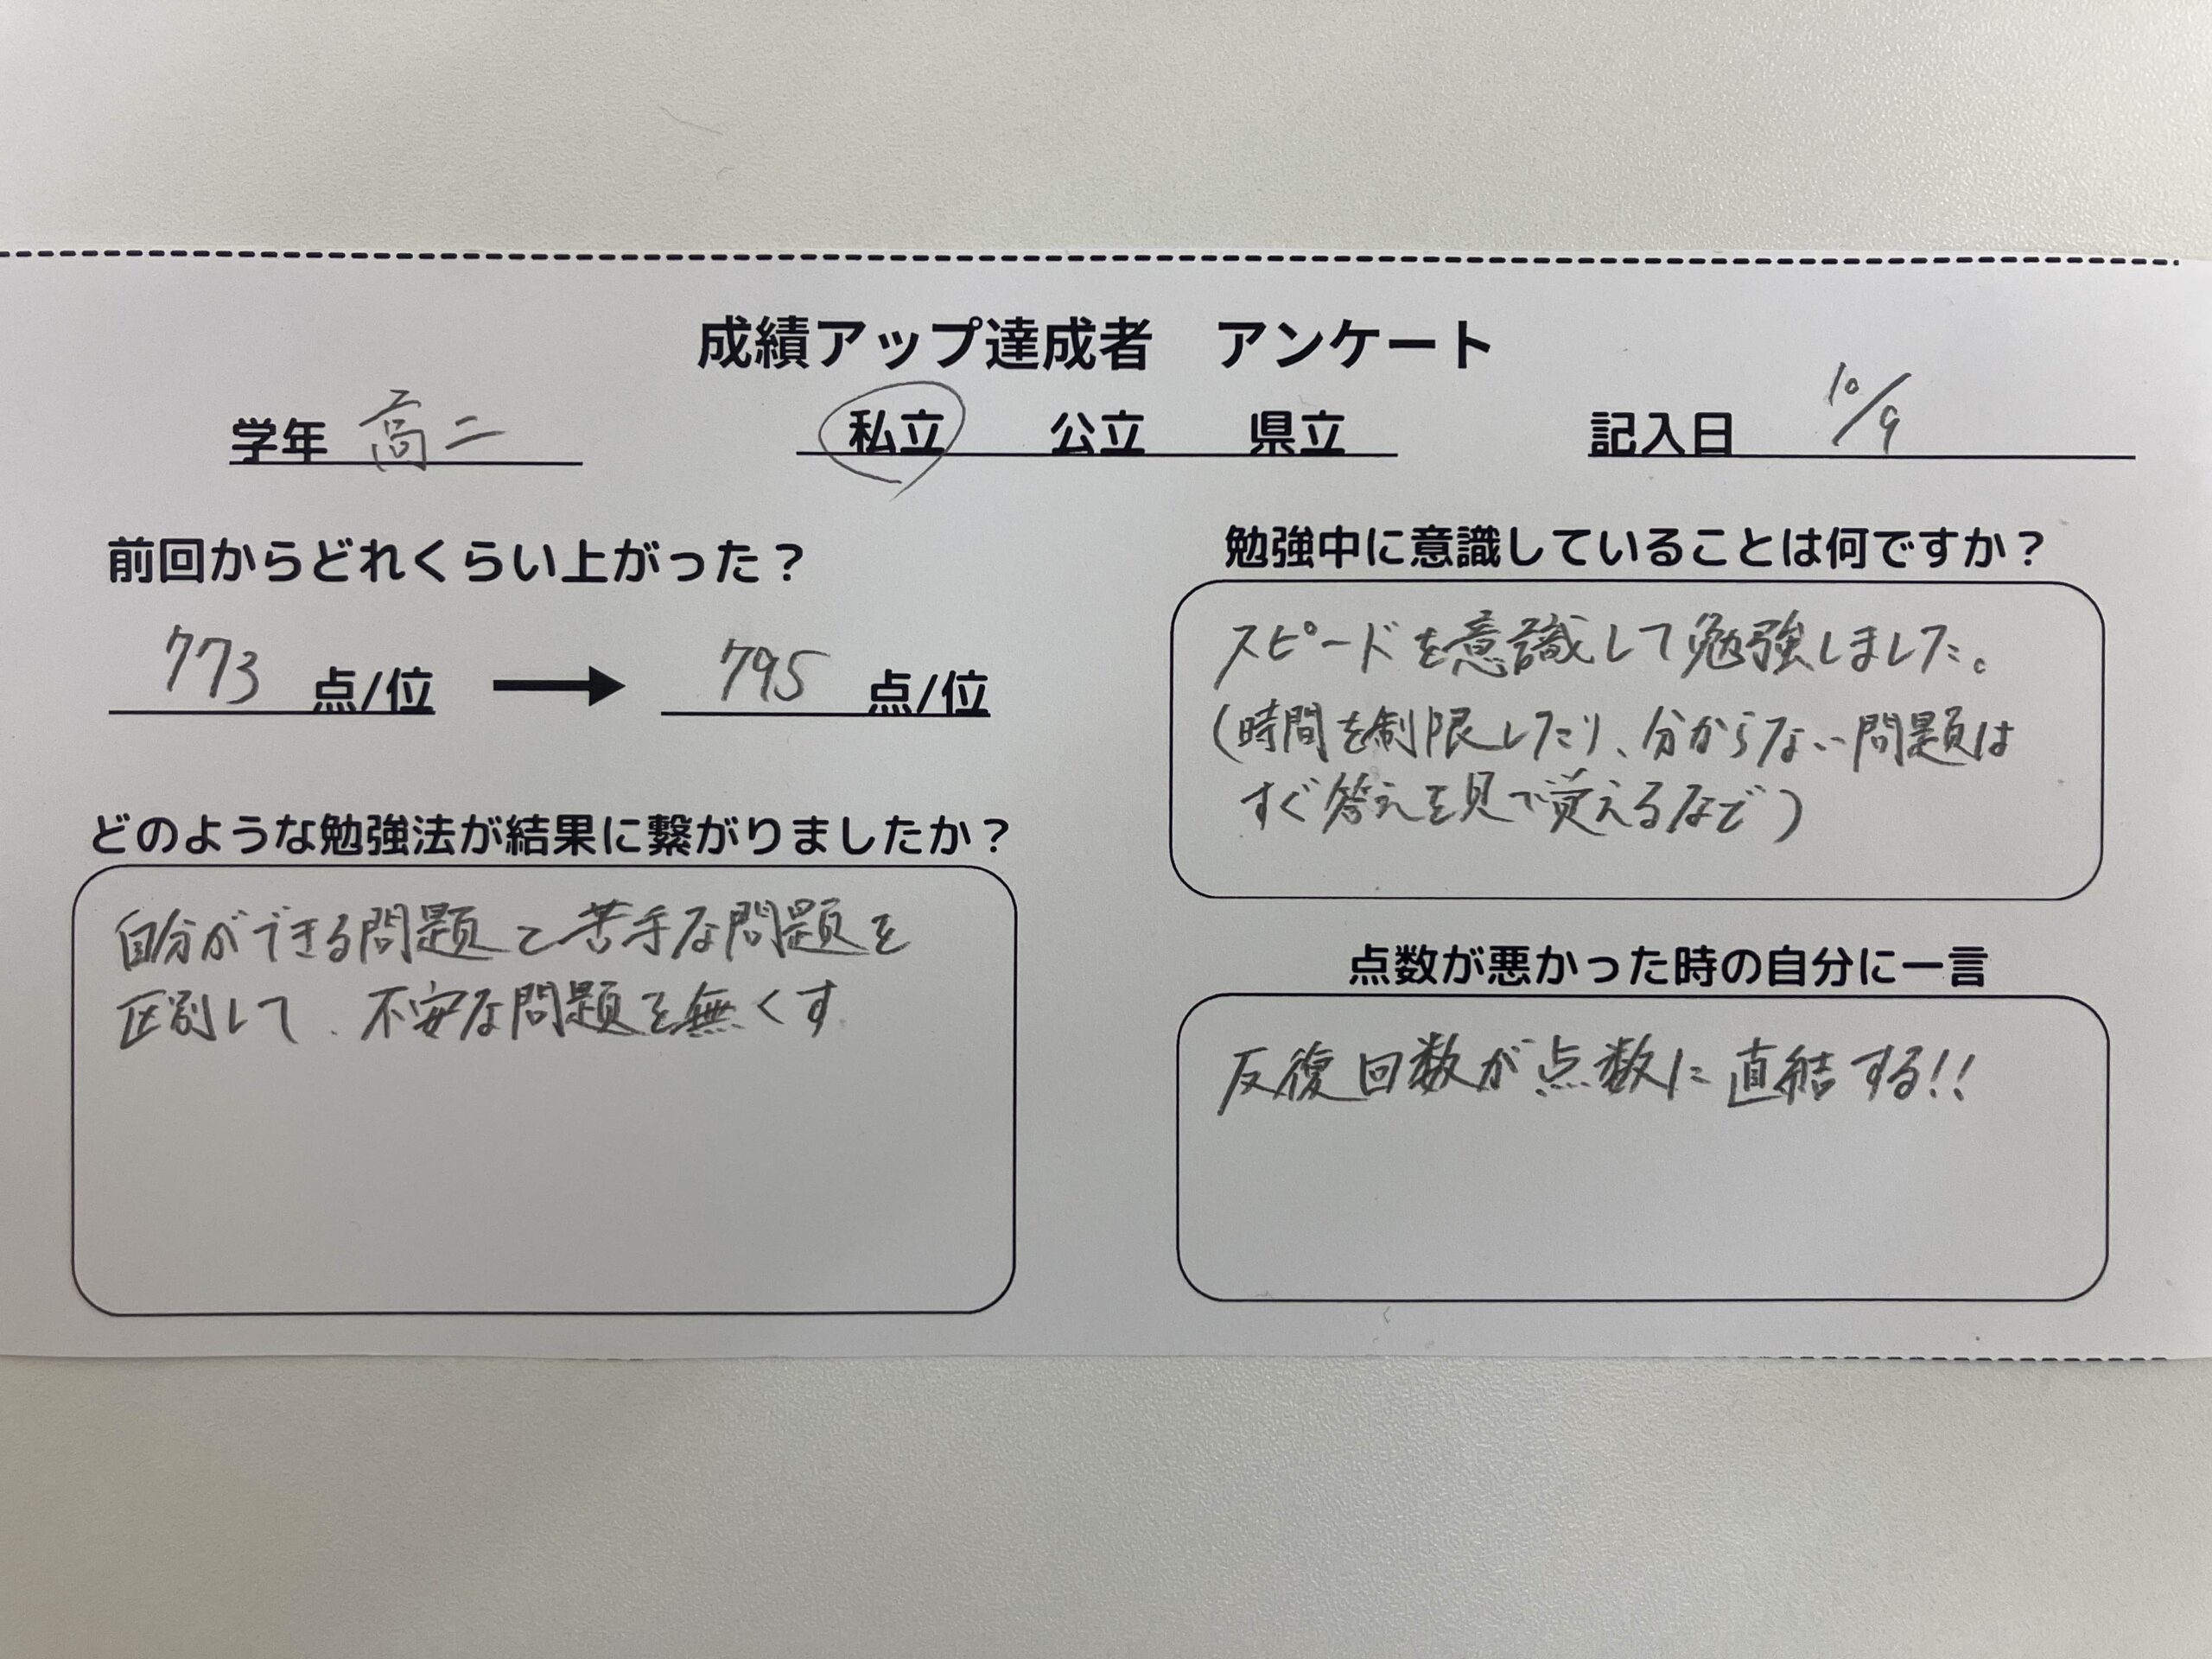 成績アップ達成者　アンケート
学年 高二　私立　公立　県立　記入日 10/9
前回からどれくらい上がった？
773 点/位 → 795 点/位
どのような勉強法が結果に繋がりましたか？
自分ができる問題と苦手な問題を
区別して、不安な問題を無くす
勉強中に意識していることは何ですか？
スピードを意識して勉強しました。
(時間を制限したり、分からない問題は
すぐ答えを見て覚えるなど)
点数が悪かった時の自分に一言
反復回数が点数に直結する!!